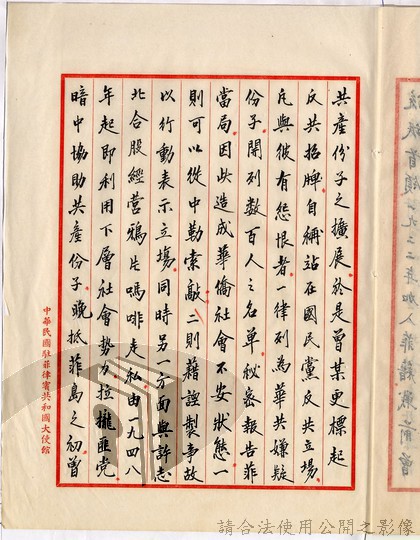 共產份子之擴展於是曾某更標起
反共招牌自稱站在國民黨反共立場
凡與彼有怨恨者一律列為華共嫌疑
份子開列數百人之名單秘密報告菲
當局因此造成華僑社會不安狀態一
則可以從中勒索敲二則藉誣製事故
以行動表示立場同時另一方面與許志
北合股經營鴉片嗎啡走私由一九四八
年起即利用下層社會勢力拉攏匪党
暗中協助共產份子晚抵菲島之初曾
中華民國駐菲律賓共和國大使館
請合法使用公開之影像